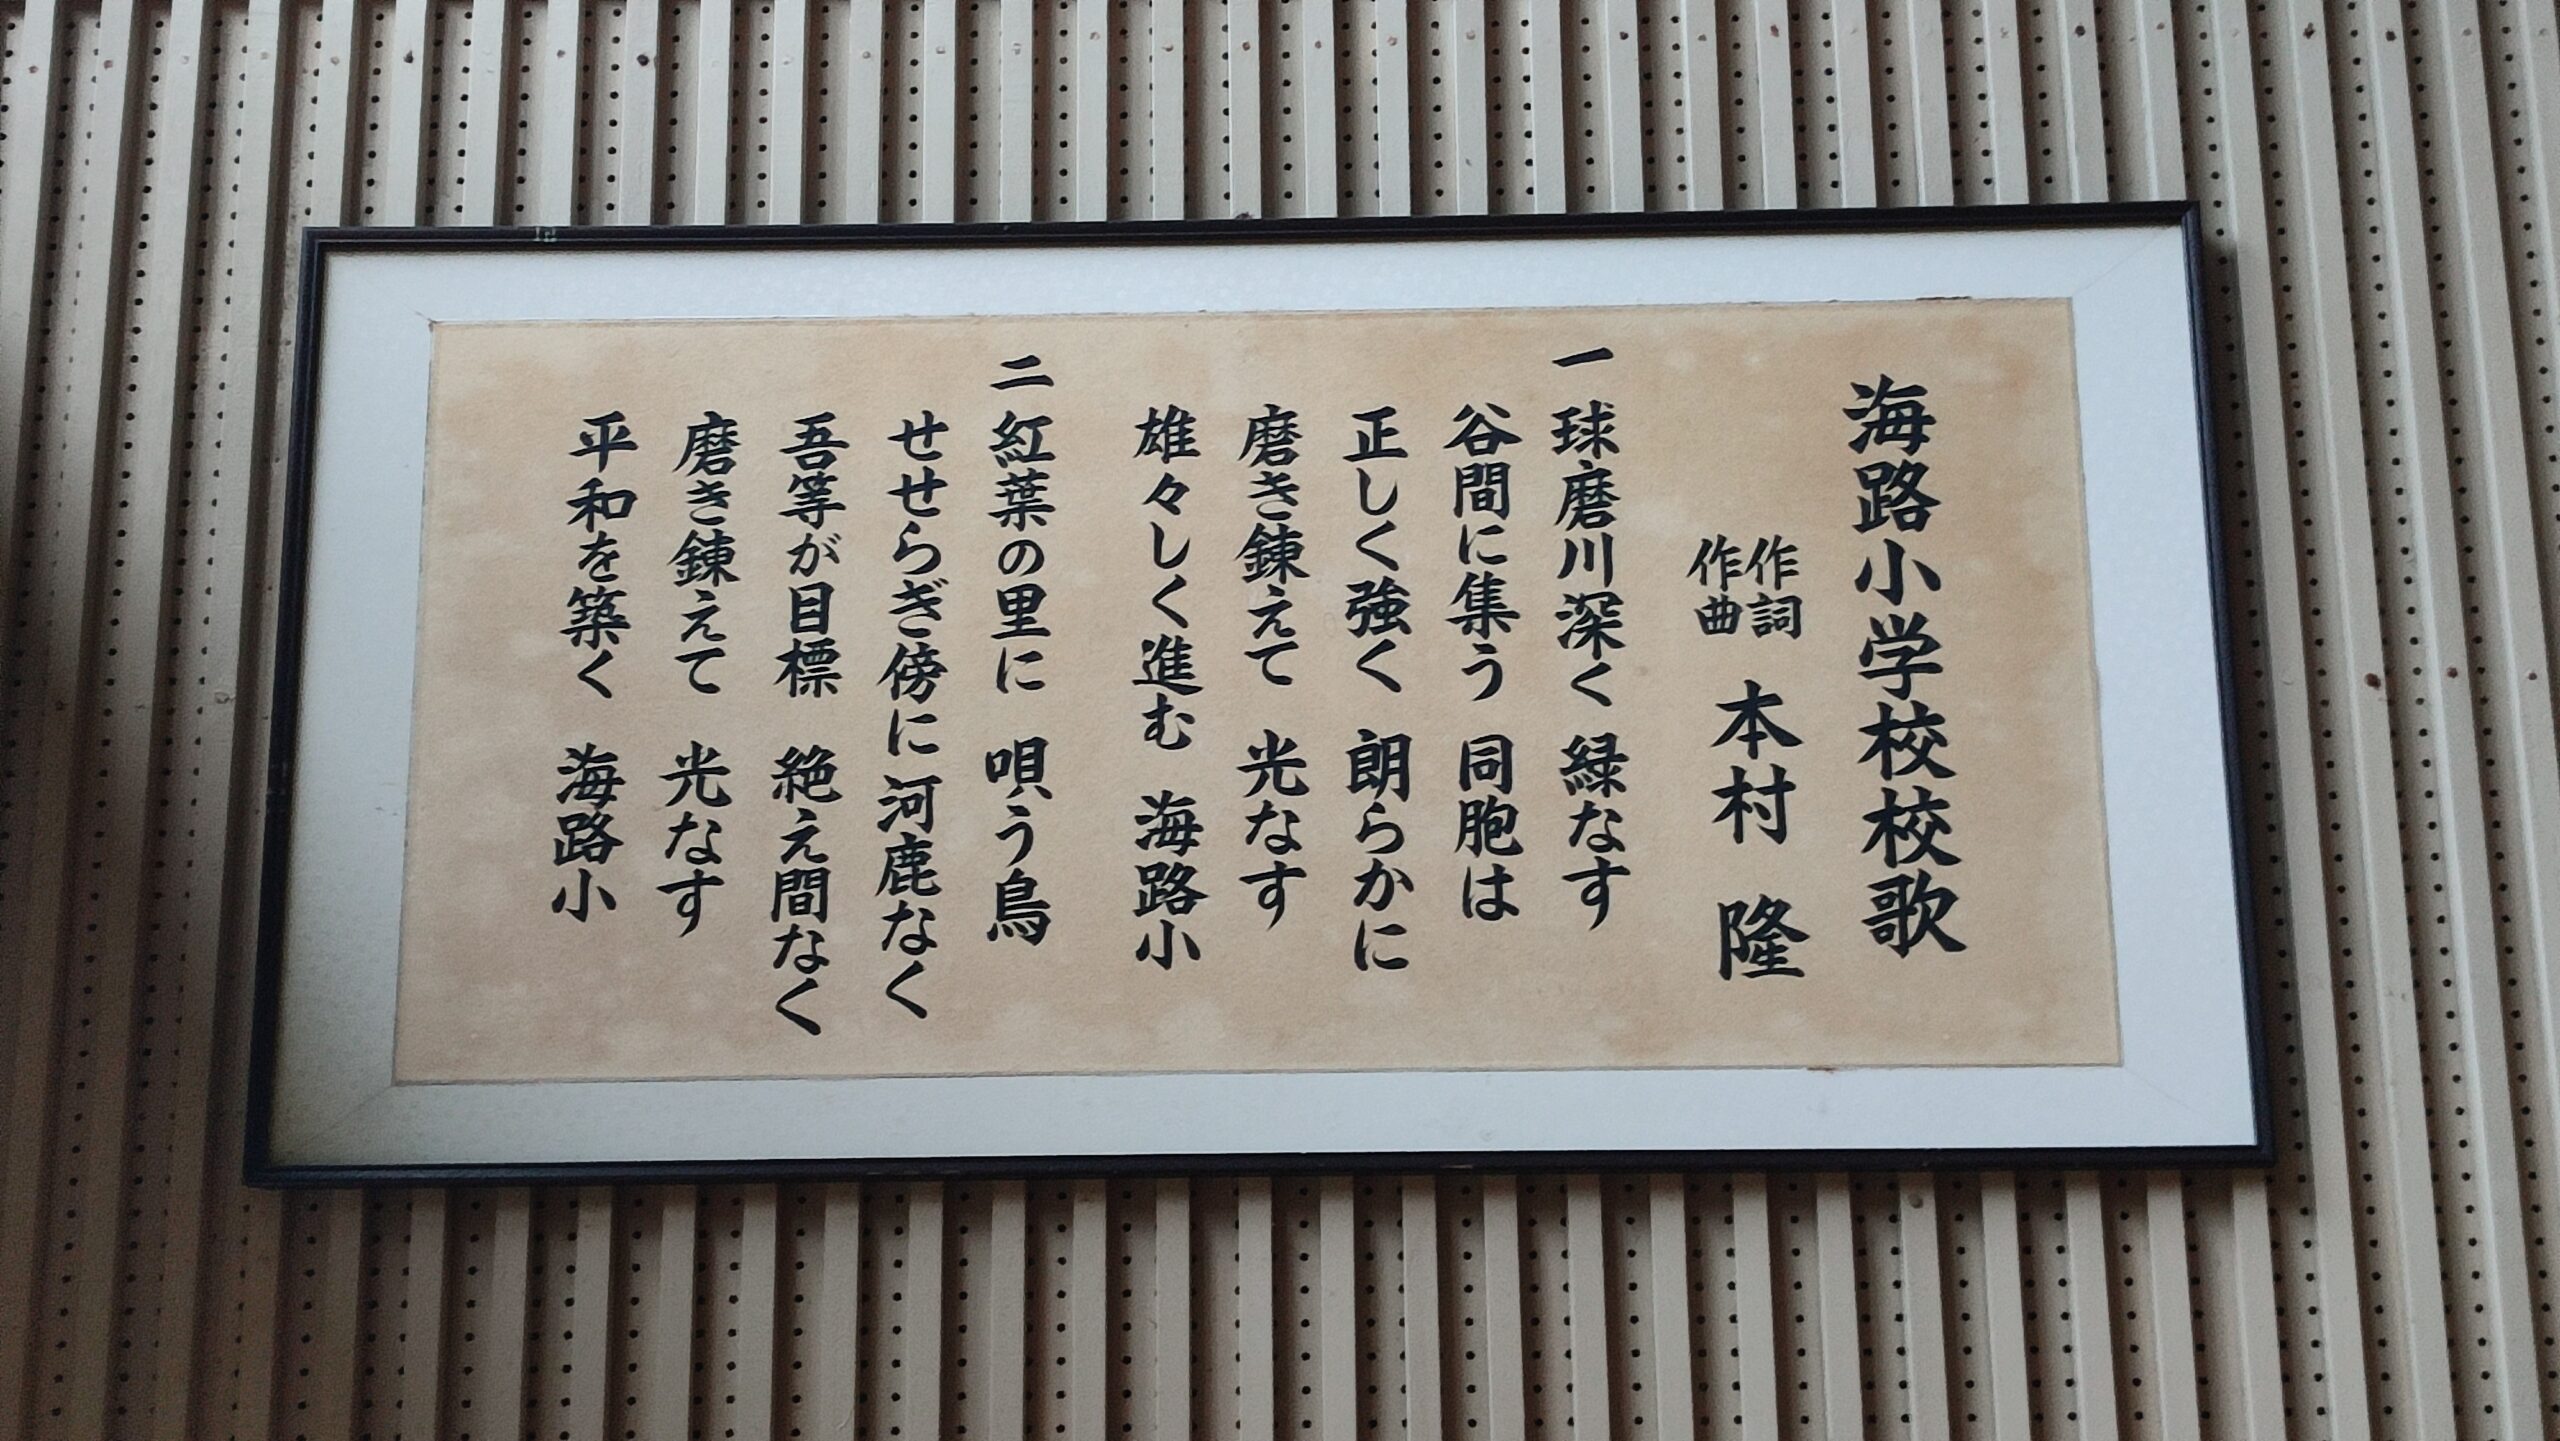 海路小学校校歌
作詞
作曲 本村 隆
一 球磨川深く 緑なす
谷間に集う 同胞は
正しく強く 朗らかに
磨き錬えて 光なす
雄々しく進む 海路小
二 紅葉の里に 唄う鳥
せせらぎ傍に河鹿なく
吾等が目標 絶え間なく
磨き錬えて 光なす
平和を築く 海路小